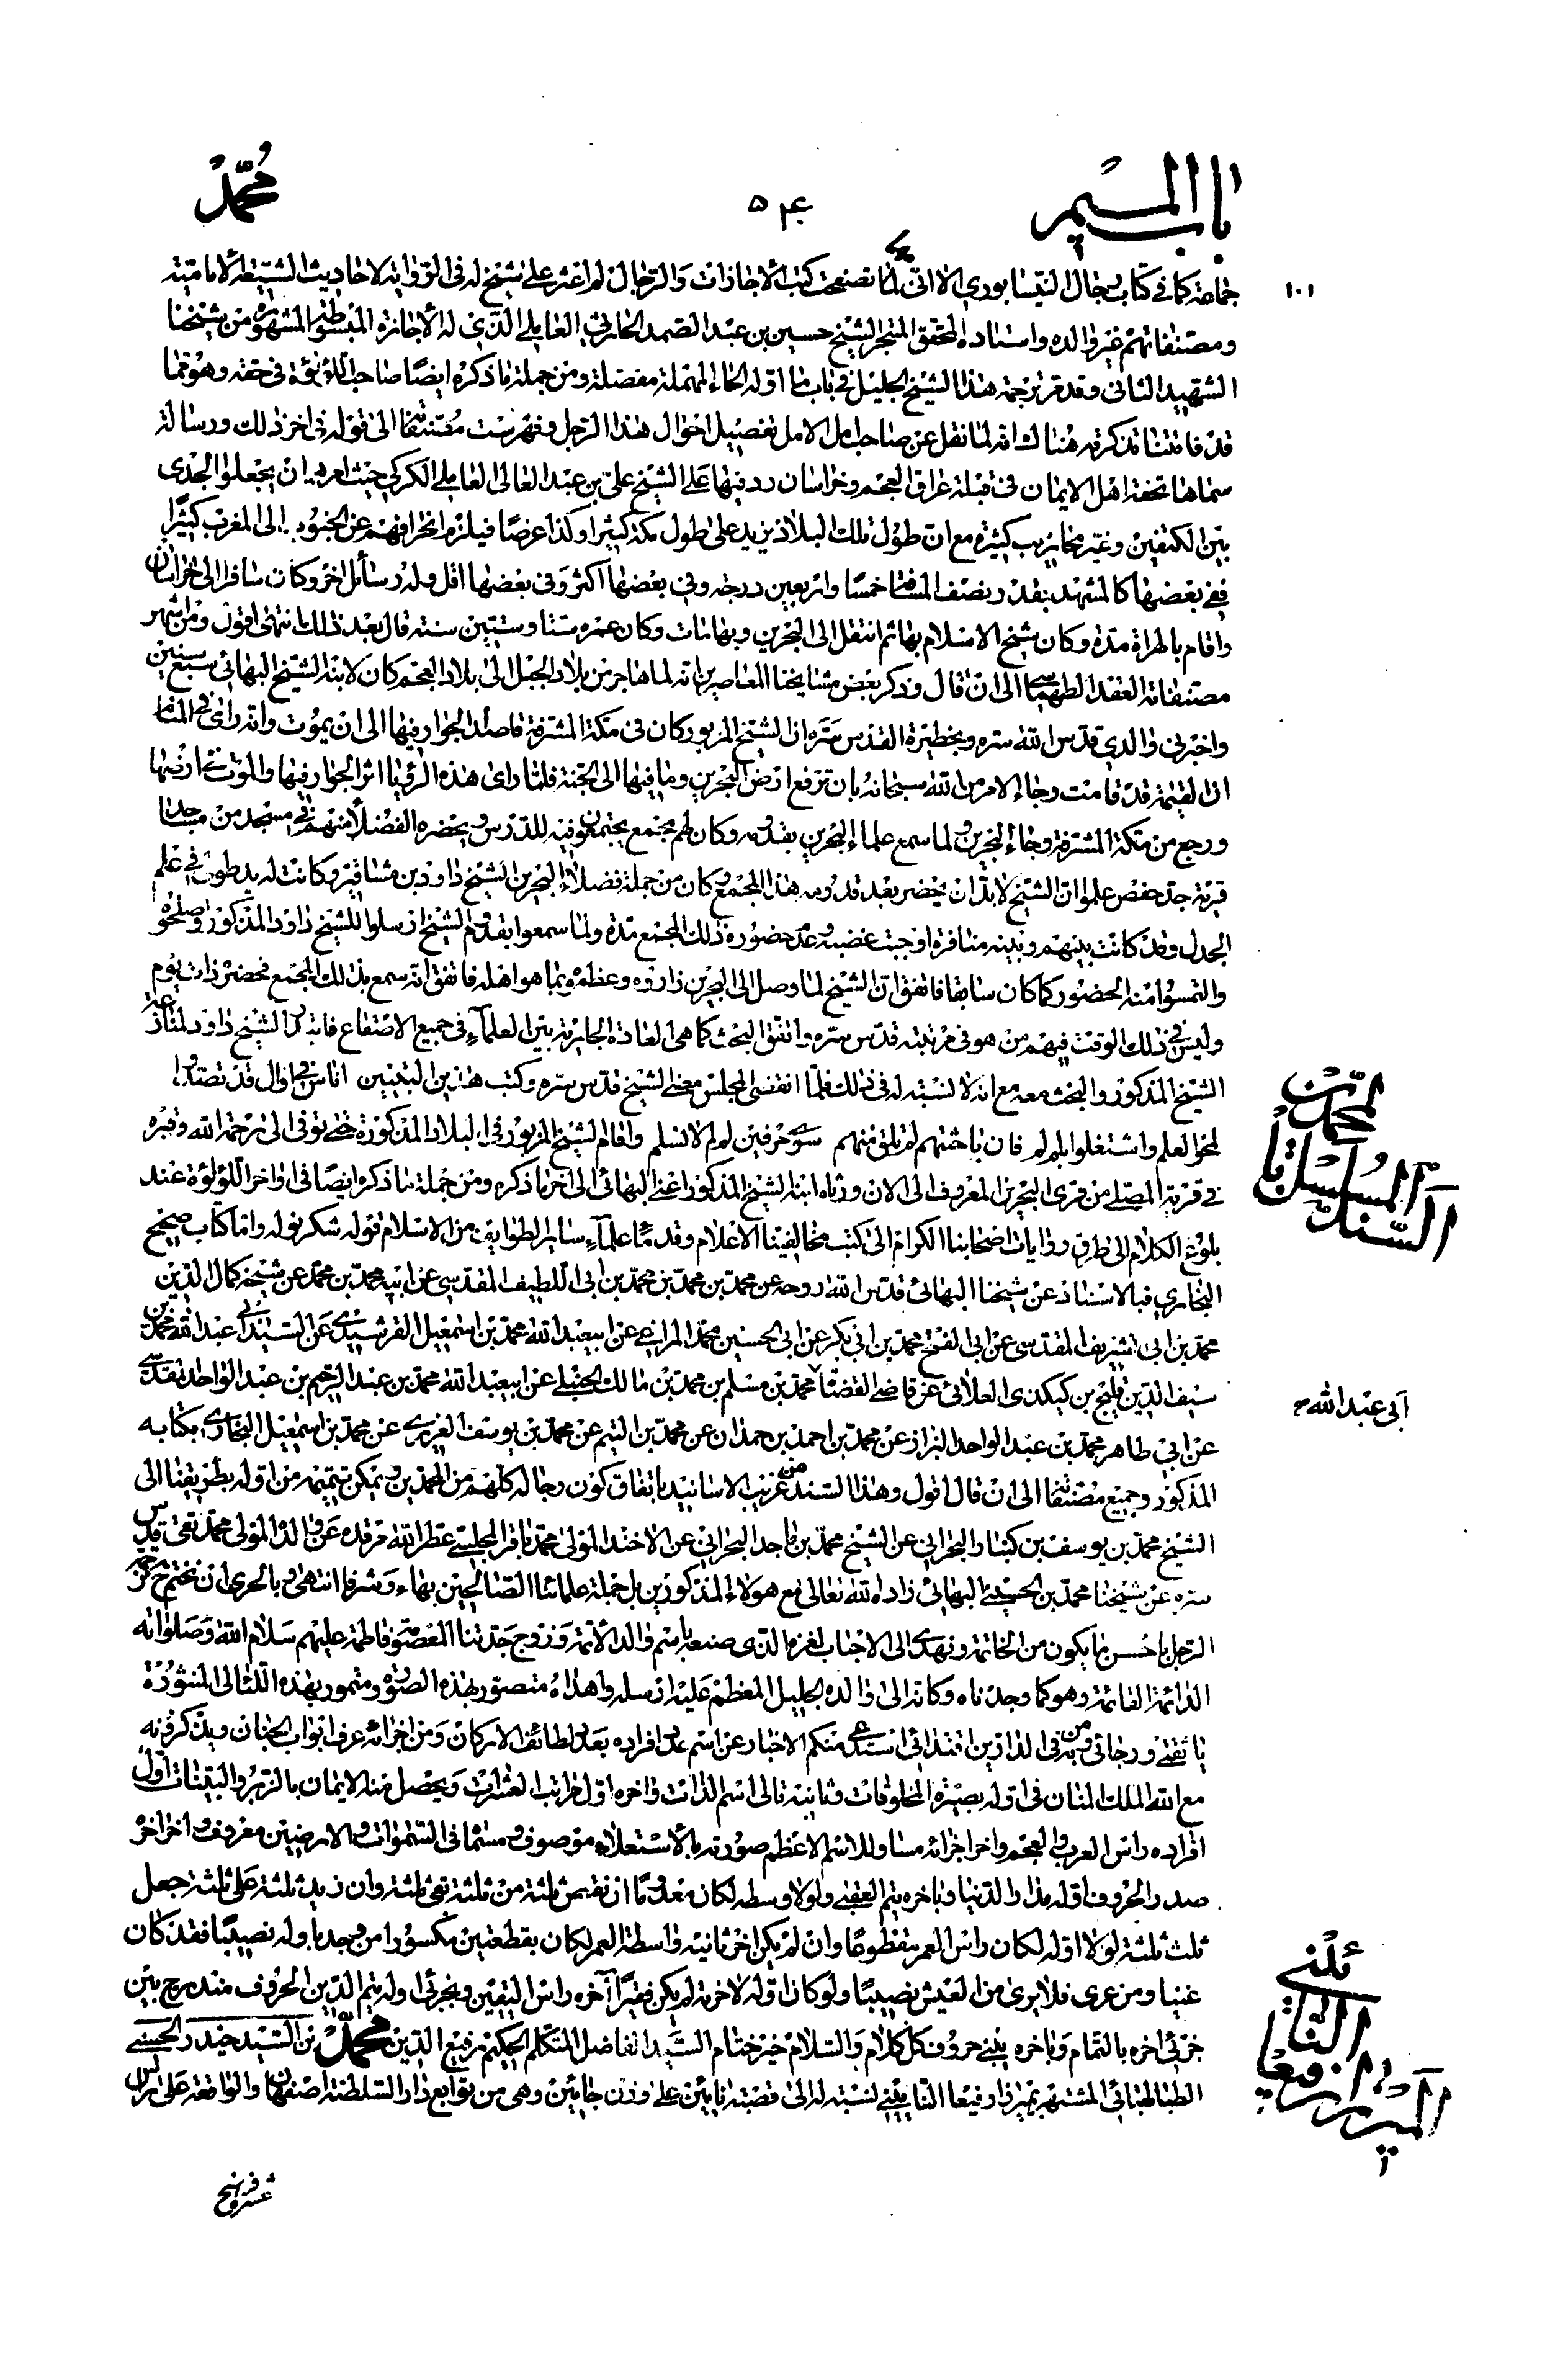 باب الميم
محمد
١٠١
جماعة كما في كتاب رجال النيسابوري الا اني لما تصفحت كتب الأجازات والرجال لم اعثر على شيخ له في الرواية لاحاديث الشيعة الامامية
ومصنفاتهم غير والده واستاده المحقق المتبحر الشيخ حسين بن عبد الصمد الحارثي العاملي الذي له الأجازة المبسوطة المشهورة من شيخنا
الشهيد الثاني وقد مر ترجمة هذا الشيخ الجليل في باب ما اوله الحاء المهملة مفصلة ومن جملة ما ذكره ايضًا صاحب اللؤلؤة في حقه وهو مما
قد فاتتنا تذكرته هناك انه لما نقل عن صاحب امل الامل تفصيل احوال هذا الرجل وفهرست مصنفاته الى قوله في اخر ذلك ورسالة
سماها تحفة اهل الايمان في قبلة عراق العجم وخراسان رد فيها على الشيخ علي بن عبد العالي العاملي الكركي حيث امرهم ان يجعلوا الجدى
بين الكتفين وغير محاريب كثيرة مع ان طول تلك البلاد يزيد على طول مكة كثيرا وكذا عرضا فيلزم انحرافهم عن الجنوب الى المغرب كثيرا
ففي بعضها كالمشهد بقدر نصف المسافة خمسًا واربعين درجة وفي بعضها اكثر وفي بعضها اقل وله رسائل اخر وكان سافر الى خراسان
واقام بالهراة مدة وكان شيخ الاسلام بها ثم انتقل الى البحرين وبها مات وكان عمره ستا وستين سنة قال بعد ذلك ما نتهى اقول ومن اشهر
مصنفاته العقد الطهماسي الى ان قال وذكر بعض مشايخنا المعاصرين انه لما هاجر من بلاد الجبل الى بلاد العجم كان لابنه الشيخ البهائي سبع سنين
واخبرني والدي قدس الله سره وبحظيرة القدس سره ان الشيخ المزبور كان في مكة المشرفة قاصدا الجوار فيها الى ان يموت وانه رأى في المنام
ان القيمة قد قامت وجاء الامر من الله سبحانه بان ترفع ارض البحرين وما فيها الى الجنة فلما رأى هذه الرؤيا اثر الجوار فيها والموت في ارضها
ورجع من مكة المشرفة وجاء البحرين ولما سمع علماء البحرين بقدومه وكان لهم مجمع يجتمعون فيه للدرس ويحضره الفضلاء منهم في مسجد من مساجد
قرية جد حفص علموا ان الشيخ لابد ان يحضر بعد قدومه هذا المجمع وكان من جملة فضلاء البحرين الشيخ داود بن شافيز وكانت له يد طولى في علم
الجدل وقد كانت بينهم وبينه منافرة اوجبت غضبه وعدم حضوره ذلك المجمع مدة ولما سمعوا بقدوم الشيخ ارسلوا للشيخ داود المذكور واصلحوه
والتمسوا منه الحضور كما كان سابقا فاتفق ان الشيخ لما وصل الى البحرين زاروه وعظموه بما هو اهله فاتفق انه سمع بذلك المجمع فحضر ذات يوم
وليس في ذلك الوقت فيهم من هو في مرتبته قدس سره واتفق البحث كما هي العادة الجارية بين العلماء في جميع الاصقاع فابتدر الشيخ داود لمنازعة
الشيخ المذكور والبحث معه مع انه لا نسبته له في ذلك فلما انقضى المجلس مضى الشيخ قدس سره وكتب هذين البيتين اناس في اوال قد تصدوا
لمحو العلم واشتغلوا بلم لم فان باحثتهم لم تلق منهم سوى حرفين لم لم لا نسلم واقام الشيخ المزبور في البلاد المذكورة حتى توفي الى رحمة الله وقبره
في قرية المصلى من قرى البحرين المعروف الى الان ورثاه ابنه الشيخ المذكور اعني البهائي الى آخر ما ذكره ومن جملة ما ذكره ايضًا في اواخر اللؤلؤة عند
بلوغ الكلام الى طرق روايات اصحابنا الكرام الى كتب مخالفينا الاعلام وقدماء علماء ساير الطوايف من الاسلام قوله شكر قوله واما كتاب صحيح
البخاري فبالاسناد عن شيخنا البهائي قدس الله روحه عن محمد بن محمد بن محمد بن ابى اللطيف المقدسي عن ابيه محمد بن محمد عن شيخه كمال الدين
محمد بن ابى شريف المقدسي عن ابى الفتح محمد بن ابى بكر عن ابى الحسين محمد المراغي عن ابيعبد الله محمد بن اسمعيل القرشيدي عن السيد ابى عبد الله محمد بن
سيف الدين فليج بن كيكلدى العلائي عن قاضي القضاة محمد بن مسلم بن محمد بن مالك الحنبلى عن ابيعبد الله محمد بن عبد الرحيم بن عبد الواحد المقدسي
عن ابي طاهر محمد بن عبد الواحد البزاز عن محمد بن احمد بن حمدان عن محمد بن اليتم عن محمد بن يوسف الفربري عن محمد بن اسمعيل البخاري بكتابه
المذكور وجميع مصنفاته الى ان قال اقول وهذا السند من غريب الاسانيد باتفاق كون رجاله كلهم من المحمدين ويمكن تتميمه من اوله بطريقنا الى
الشيخ محمد بن يوسف بن كنبار البحراني عن الشيخ محمد بن ماجد البحراني عن الاخند المولى محمد باقر المجلسي عطر الله مرقده عن والده المولى محمد تقى قدس
سره عن شيخنا محمد بن الحسين البهائي زاده الله تعالى مع هولاء المذكورين بل جملة علمائنا الصالحين بهاء وشرفا انتهى وبالحرى ان نختم ترجمة
الرجل باحسن ما يكون من الخاتمة ونهدى الى الاحباب لغزه الذى صنعه باسم والد الأئمة وزوج جدتنا المعصومة فاطمة عليهم سلام الله وصلواته
الدائمة القائمة وهو كما وجدناه وكانه الى والده الجليل المعظم عليه ارسله واهداه متصور بهذه الصورة ومتمور بهذه اللئالى المنثورة
يا ثقتي ورجائي ومن به في الدارين اعتدائي استدعى منكم الاخبار عن اسم على افراده بعدد لطائف الاركان ومن اجزائه عرف ابواب الجنان وبذكر قرنه
مع الله الملك المنان في اوله بصيرة المخلوقات وثانيه تالى اسم الذات واخره اول مراتب العشرات ويحصل منه الايمان بالزبر والبينات اول
افراده راس العرب والعجم واخر اجزائه مساو للاسم الاعظم صورته بالأستعلاء موصوف ومسماه في السموات والارضين معروف واخر اخره
صدر الحروف اوله مدار الدنيا وباخره يتم العقبى ولولا وسطه لكان معدوما ان نقص ثلثة من ثلثة بقى ثلثة وان زيد ثلثة على ثلثة جعل
ثلث ثلثة لولا اوله لكان راس العمر مقطوعا وان لم يكن اخر ثانيه واسطة العمر لكان بقطعتين مكسورا من وجد باوله نصيبًا فقد كان
غنيا ومن عرى فلا يرى من العيش نصيبًا ولو كان اوله لاخرته لم يكن فقيرا آخره راس اليقين وبجزئى اوله يتم الدين الحروف مندرج بين
جزئى اخره بالتمام وباخره يبتنى حروف كل كلام والسلام خير ختام السيد الفاضل المتكلم الحكيم رفيع الدين محمد بن السيد حيدر الحسيني
الطباطبائي المشتهر بميرزا رفيعا النائيني لنسبته له الى قصبة نايين على وزن جايين وهي من توابع دار السلطنة اصفهان والواقعة على راس
المسلسل با
السند
ابى عبد الله
النا
ئيني
الميرزا رفيعا